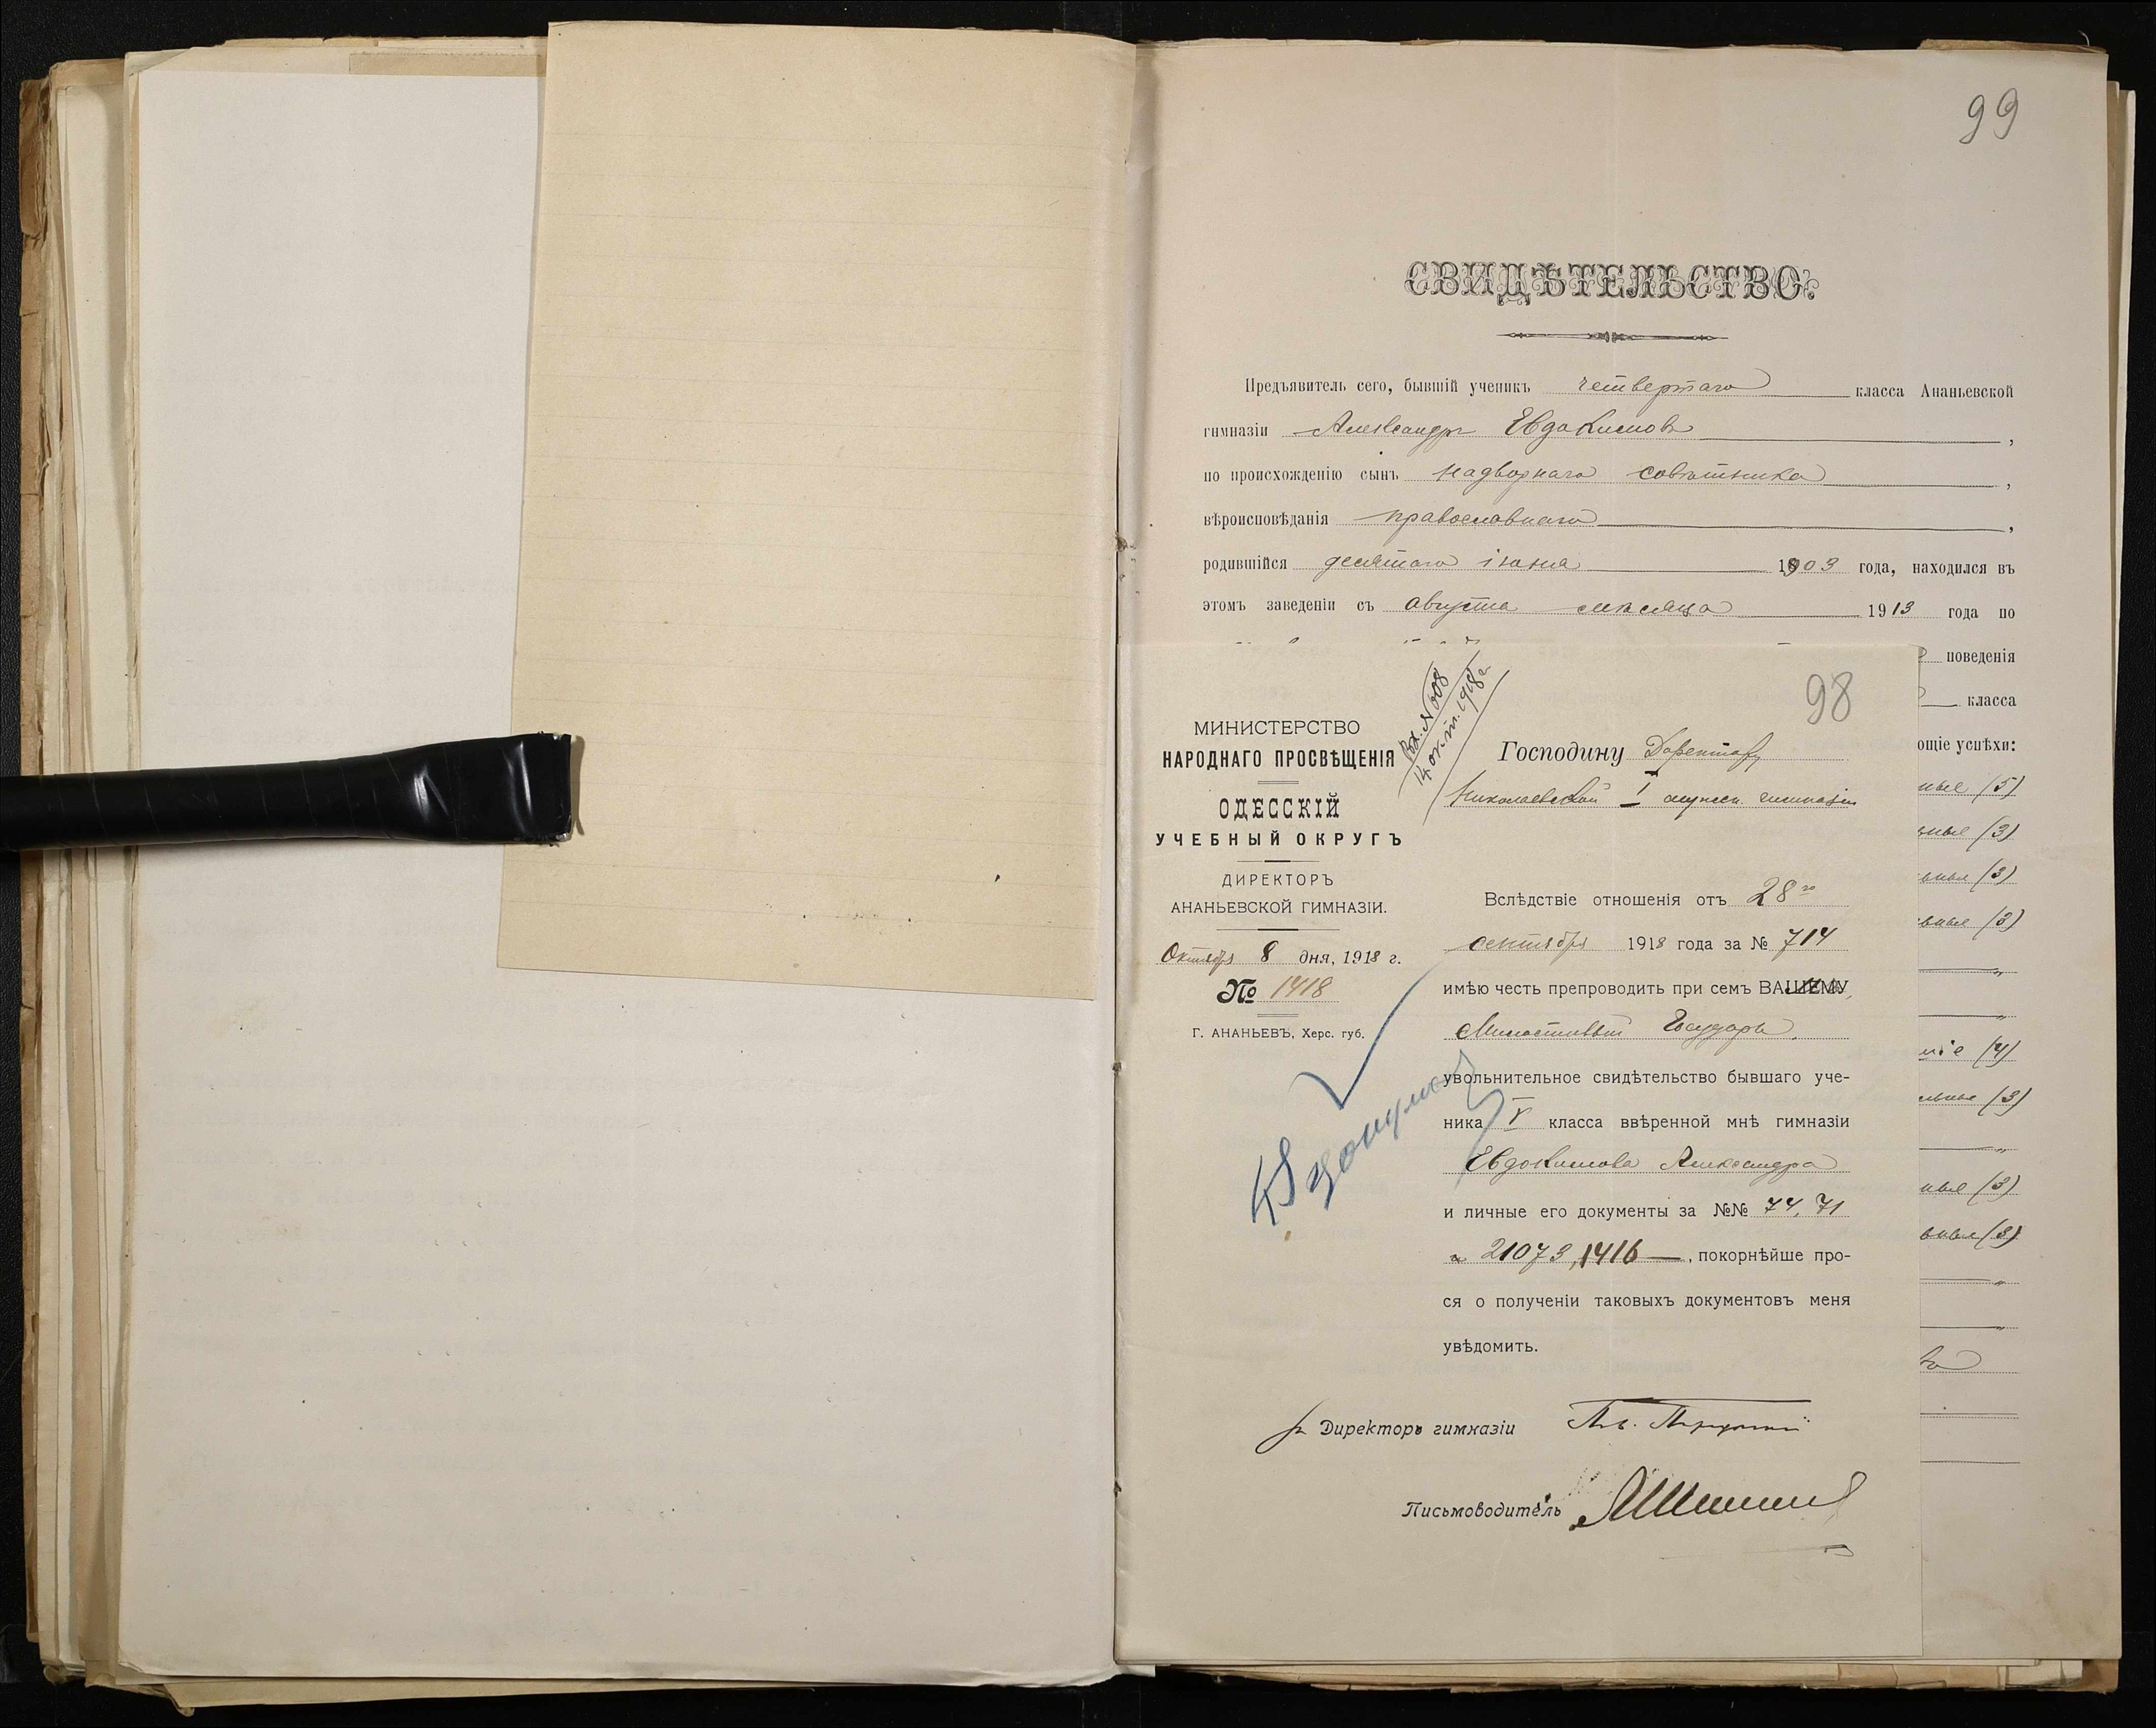 99
СВИДѢТЕЛЬСТВО.
Предъявитель сего, бывшій ученикъ четвертаго класса Ананьевской
гимназіи Александръ Евдокимовъ,
по происхожденію сынъ надворнаго совѣтника,
вѣроисповѣданія православнаго,
родившійся десятаго іюня 1903 года, находился въ
этомъ заведеніи съ августа мѣсяца 1913 года по
поведенія
класса
ющіе успѣхи:
ные (5)
ьные (3)
ьные (3)
ьные (3)
ніе (4)
ельные (3)
ные (3)
ьные (3)
98
Вх. № 608
14 окт. 1918 г.
МИНИСТЕРСТВО
НАРОДНАГО ПРОСВѢЩЕНІЯ
ОДЕССКІЙ
УЧЕБНЫЙ ОКРУГЪ
ДИРЕКТОРЪ
АНАНЬЕВСКОЙ ГИМНАЗІИ.
Октября 8 дня, 1918 г.
№ 1418
Г. АНАНЬЕВЪ, Херс. губ.
Господину Директору
Николаевской I мужск. гимназіи
Вслѣдствіе отношенія отъ 28го
сентября 1918 года за № 714
имѣю честь препроводить при семъ ВАШЕМУ,
Милостивый Государь,
увольнительное свидѣтельство бывшаго уче-
ника V класса ввѣренной мнѣ гимназіи
Евдокимова Александра
и личные его документы за №№ 74, 71
и 21073, 1416 —, покорнѣйше про-
ся о полученіи таковыхъ документовъ меня
увѣдомить.
Директоръ гимназіи
Письмоводитель